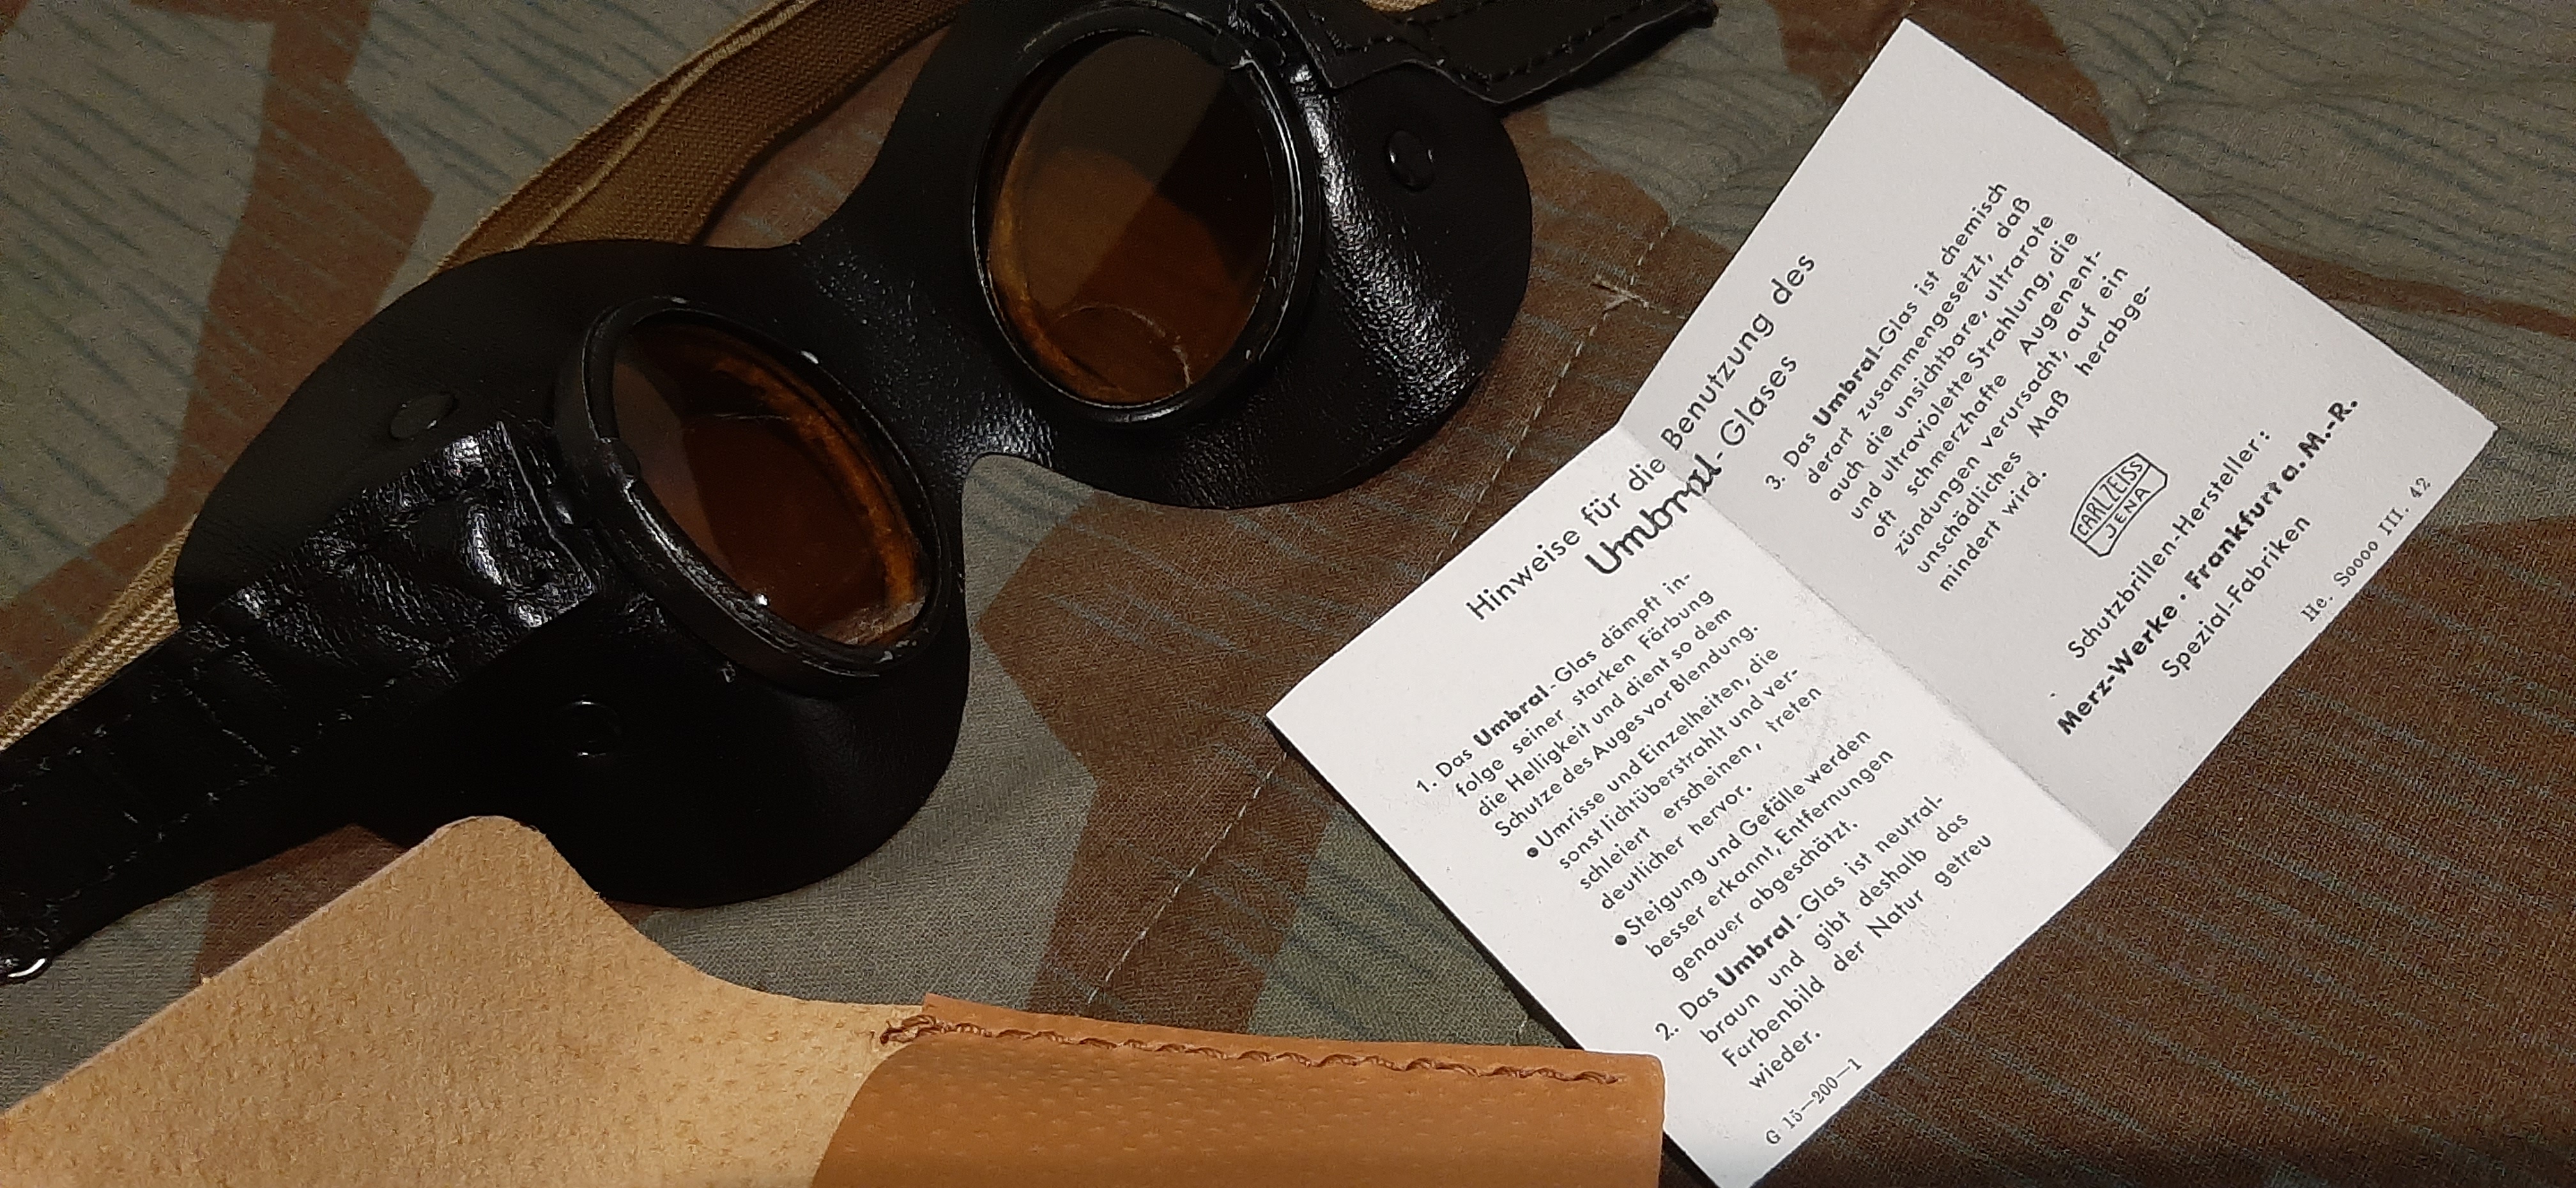 Hinweise für die Benutzung des
Umbral-Glases
1. Das Umbral-Glas dämpft in-
folge seiner starken Färbung
die Helligkeit und dient so dem
Schutze des Auges vor Blendung.
● Umrisse und Einzelheiten, die
sonst lichtüberstrahlt und ver-
schleiert erscheinen, treten
deutlicher hervor.
● Steigung und Gefälle werden
besser erkannt, Entfernungen
genauer abgeschätzt.
2. Das Umbral-Glas ist neutral-
braun und gibt deshalb das
Farbenbild der Natur getreu
wieder.
G 15—200—1
3. Das Umbral-Glas ist chemisch
derart zusammengesetzt, daß
auch die unsichtbare, ultrarote
und ultraviolette Strahlung, die
oft schmerzhafte Augenent-
zündungen verursacht, auf ein
unschädliches Maß herabge-
mindert wird.
CARL ZEISS
JENA
Schutzbrillen-Hersteller:
Merz-Werke · Frankfurt a. M.-R.
Spezial-Fabriken
He. 50000 III. 42